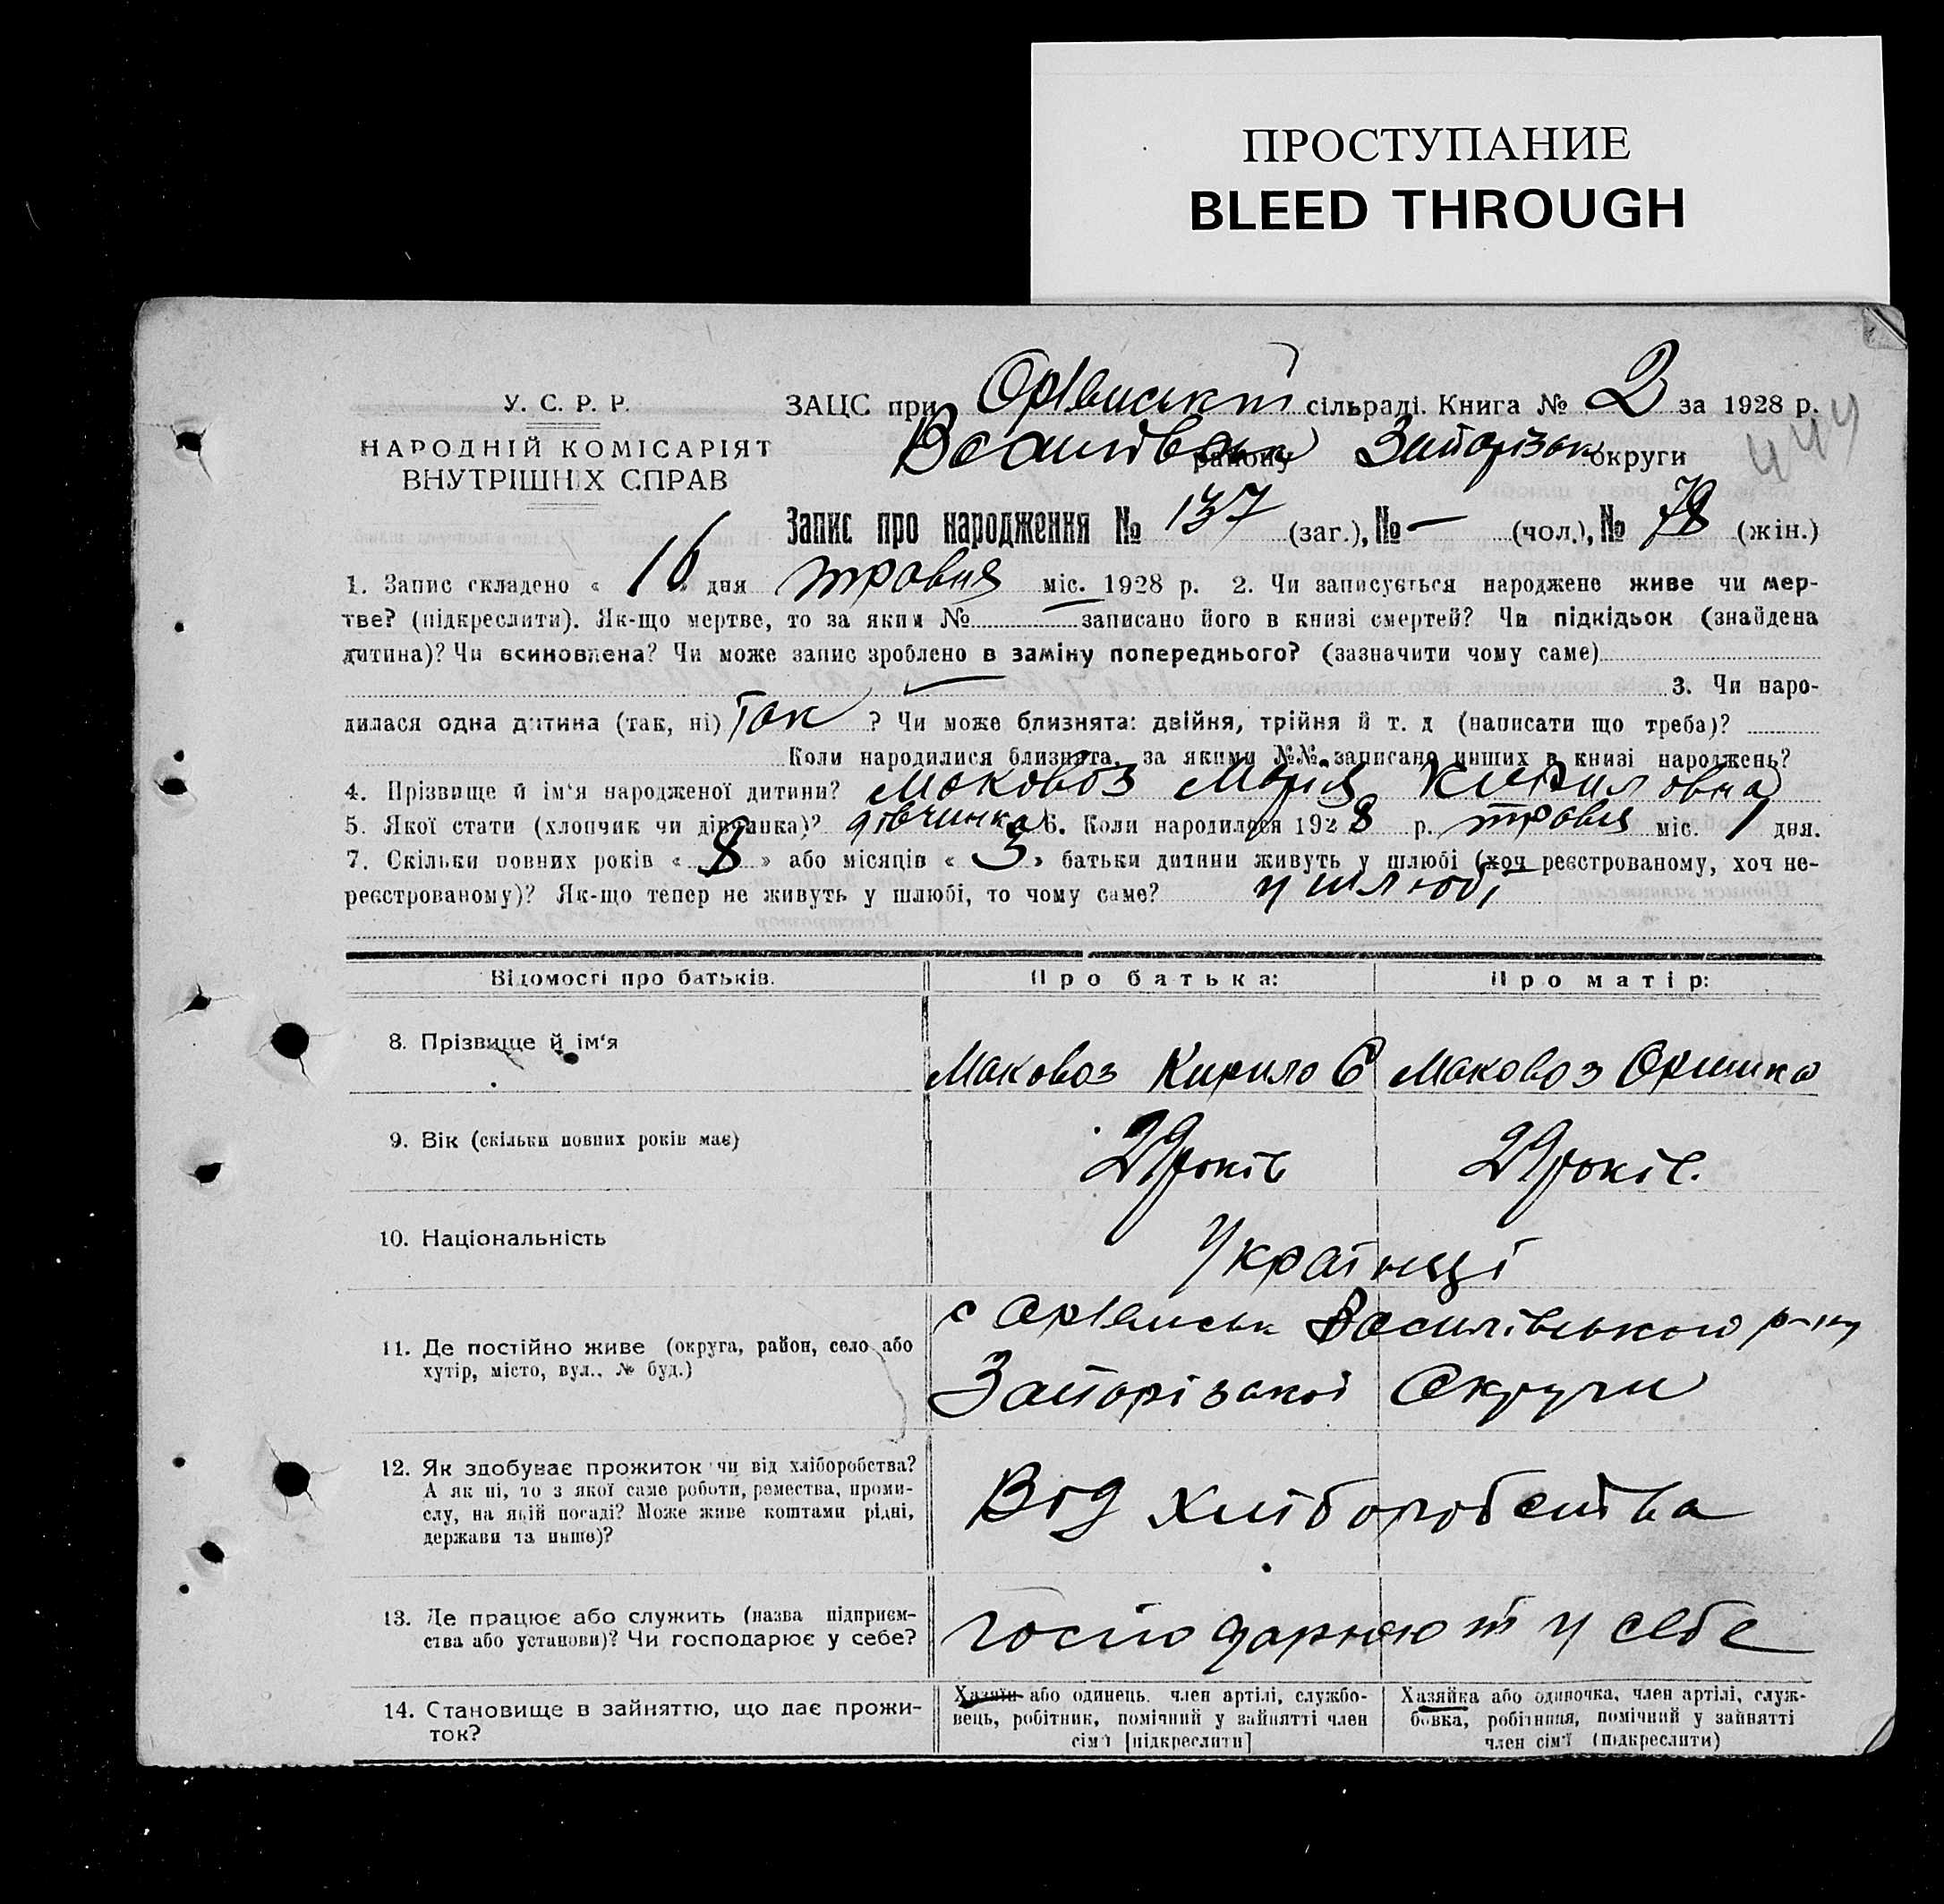 ПРОСТУПАНИЕ
BLEED THROUGH
У. С. Р. Р.
НАРОДНІЙ КОМІСАРІЯТ
ВНУТРІШНІХ СПРАВ
ЗАЦС при сільраді. Книга № 2 за 1928 р.
району Запорізьк округи
444
Запис про народження № 137 (заг.), № — (чол.), № 78 (жін.)
1. Запис складено « 16 » дня травня міс. 1928 р. 2. Чи записується народжене живе чи мер-
тве? (підкреслити). Як-що мертве, то за яким № записано його в книзі смертей? Чи підкідьок (знайдена
дитина)? Чи всиновлена? Чи може запис зроблено в заміну попереднього? (зазначити чому саме)
3. Чи наро-
дилася одна дитина (так, ні) Так ? Чи може близнята: двійня, трійня й т. д (написати що треба)?
Коли народилися близнята, за якими №№ записано инших в книзі народжень?
4. Прізвище й ім'я народженої дитини? Маковоз Марія Кириловна
5. Якої стати (хлопчик чи дівчинка)? дівчинка 6. Коли народилася 1928 р. травня міс. 1 дня.
7. Скільки повних років « 8 » або місяців « 3 » батьки дитини живуть у шлюбі (хоч реєстрованому, хоч не-
реєстрованому)? Як-що тепер не живуть у шлюбі, то чому саме? у шлюбі
Відомості про батьків. Про батька: Про матір:
8. Прізвище й ім'я Маковоз Кирило Є Маковоз Оришка
9. Вік (скільки повних років має) 29 років 29 років.
10. Національність Українці
11. Де постійно живе (округа, район, село або
хутір, місто, вул., № буд.)
с Василівського р-ну
Запорізької Округи
12. Як здобуває прожиток чи від хліборобства?
А як ні, то з якої саме роботи, ремества, проми-
слу, на якій посаді? Може живе коштами рідні,
держави та инше)?
Від хліборобства
13. Де працює або служить (назва підприєм-
ства або установи)? Чи господарює у себе?
господарюют у себе
14. Становище в зайняттю, що дає прожи-
ток?
Хазяїн або одинець, член артілі, службо-
вець, робітник, помічний у зайнятті член
сім'ї [підкреслити]
Хазяйка або одиночка, член артілі, служ-
бовка, робітниця, помічний у зайнятті
член сім'ї (підкреслити)